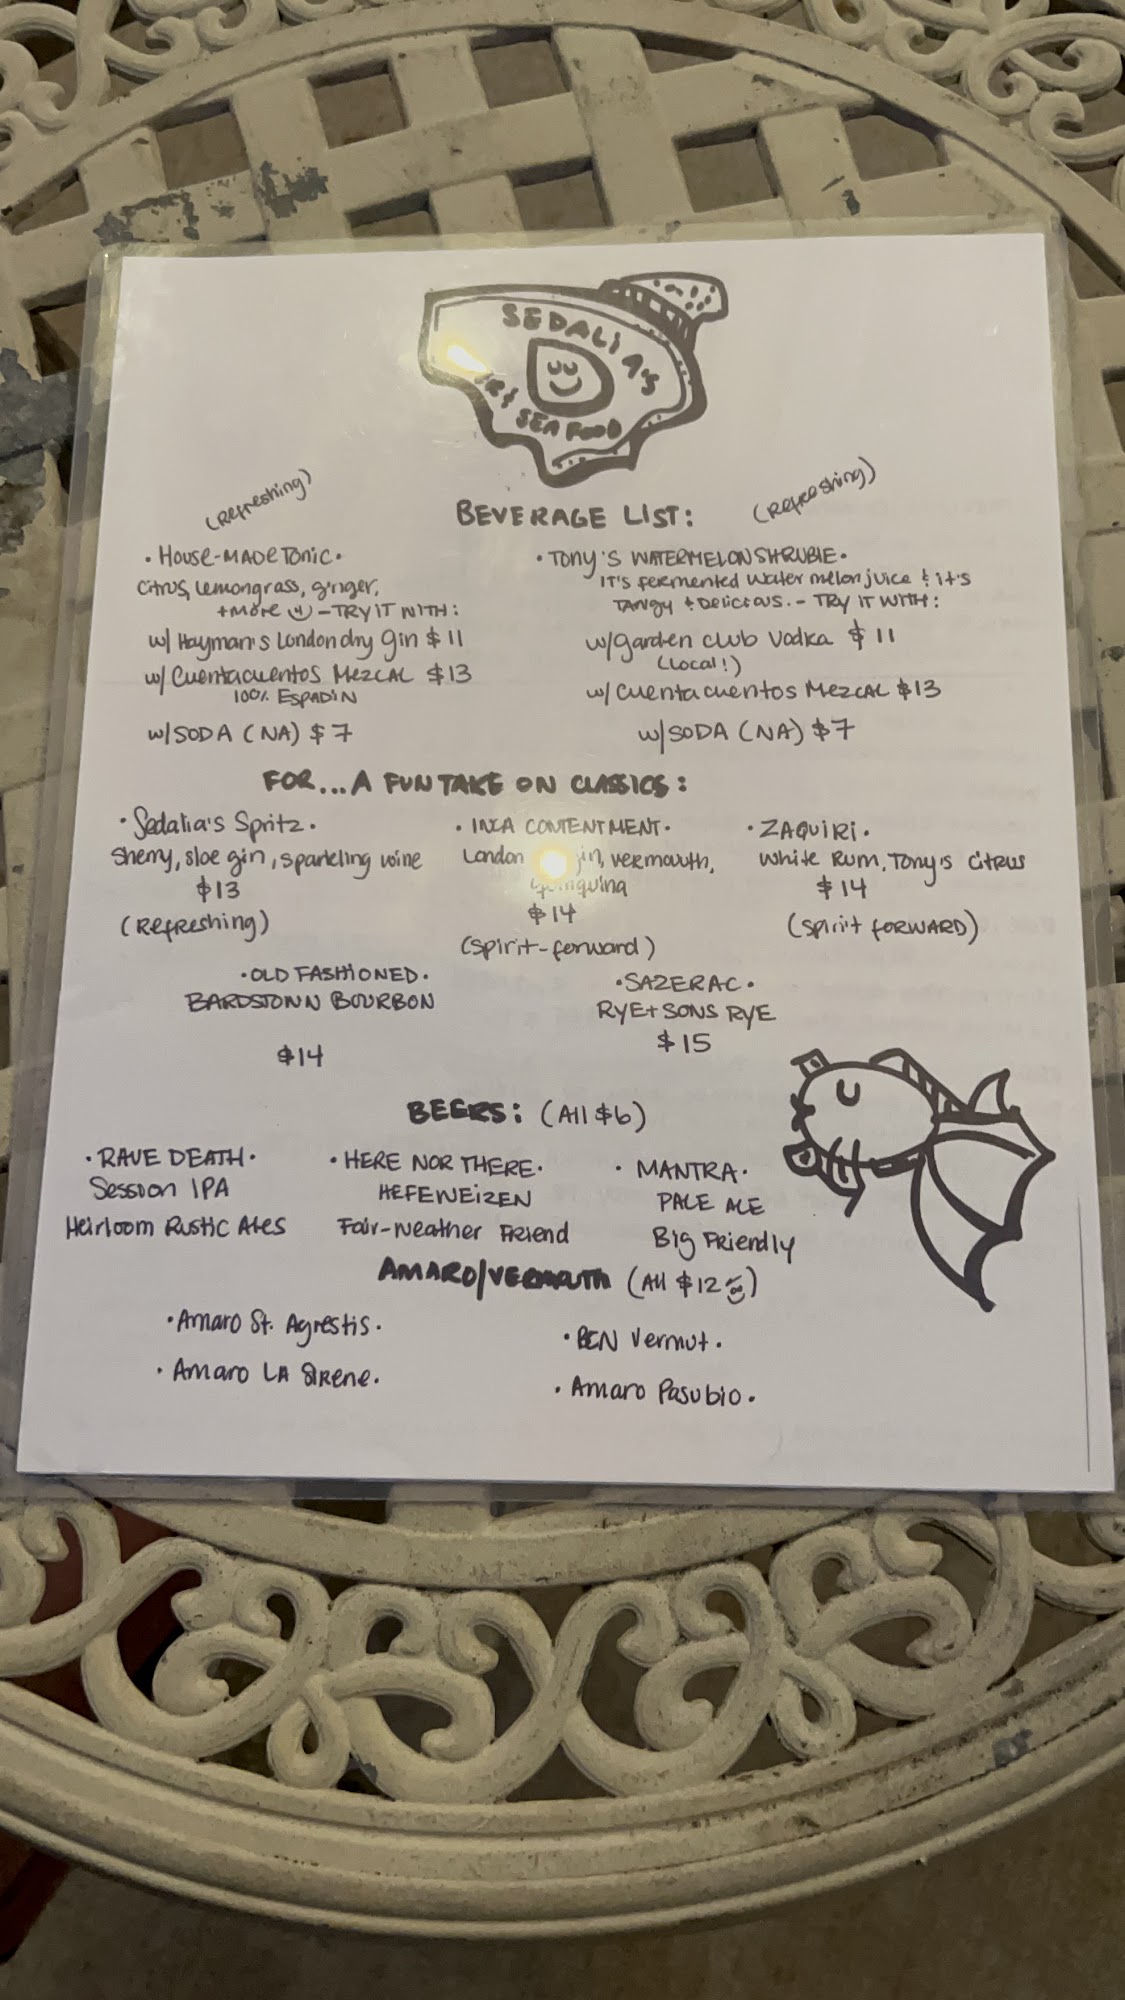 SEDALIA'S
SEAFOOD
(Refreshing)
(Refreshing)
BEVERAGE LIST:
• HOUSE-MADE TONIC •
Citrus, lemongrass, ginger,
+more – TRY IT WITH:
w/ Hayman's London dry Gin $11
w/ Cuentacuentos MEZCAL $13
100% ESPADIN
w/SODA (NA) $7
• TONY'S WATERMELON SHRUBIE •
IT'S fermented watermelon juice & it's
TANGY + DELICIOUS. – TRY IT WITH:
w/garden club Vodka $11
(Local!)
w/Cuentacuentos MEZCAL $13
w/SODA (NA) $7
FOR...A FUN TAKE ON CLASSICS:
• Sedalia's Spritz •
Sherry, sloe gin, sparkling wine
$13
(Refreshing)
• INCA CONTENTMENT •
London gin, vermouth,
$14
(spirit-forward)
• ZAQUIRI •
White Rum, Tony's Citrus
$14
(spirit FORWARD)
• OLD FASHIONED •
BARDSTOWN BOURBON
$14
• SAZERAC •
RYE + SONS RYE
$15
BEERS: (All $6)
• RAVE DEATH •
Session IPA
Heirloom Rustic Ales
• HERE NOR THERE •
HEFEWEIZEN
Fair-weather Friend
• MANTRA •
PALE ALE
Big Friendly
AMARO/VERMOUTH (All $12)
• Amaro St. Agrestis •
• Amaro LA SIRENE •
• BCN Vermut •
• Amaro Pasubio •